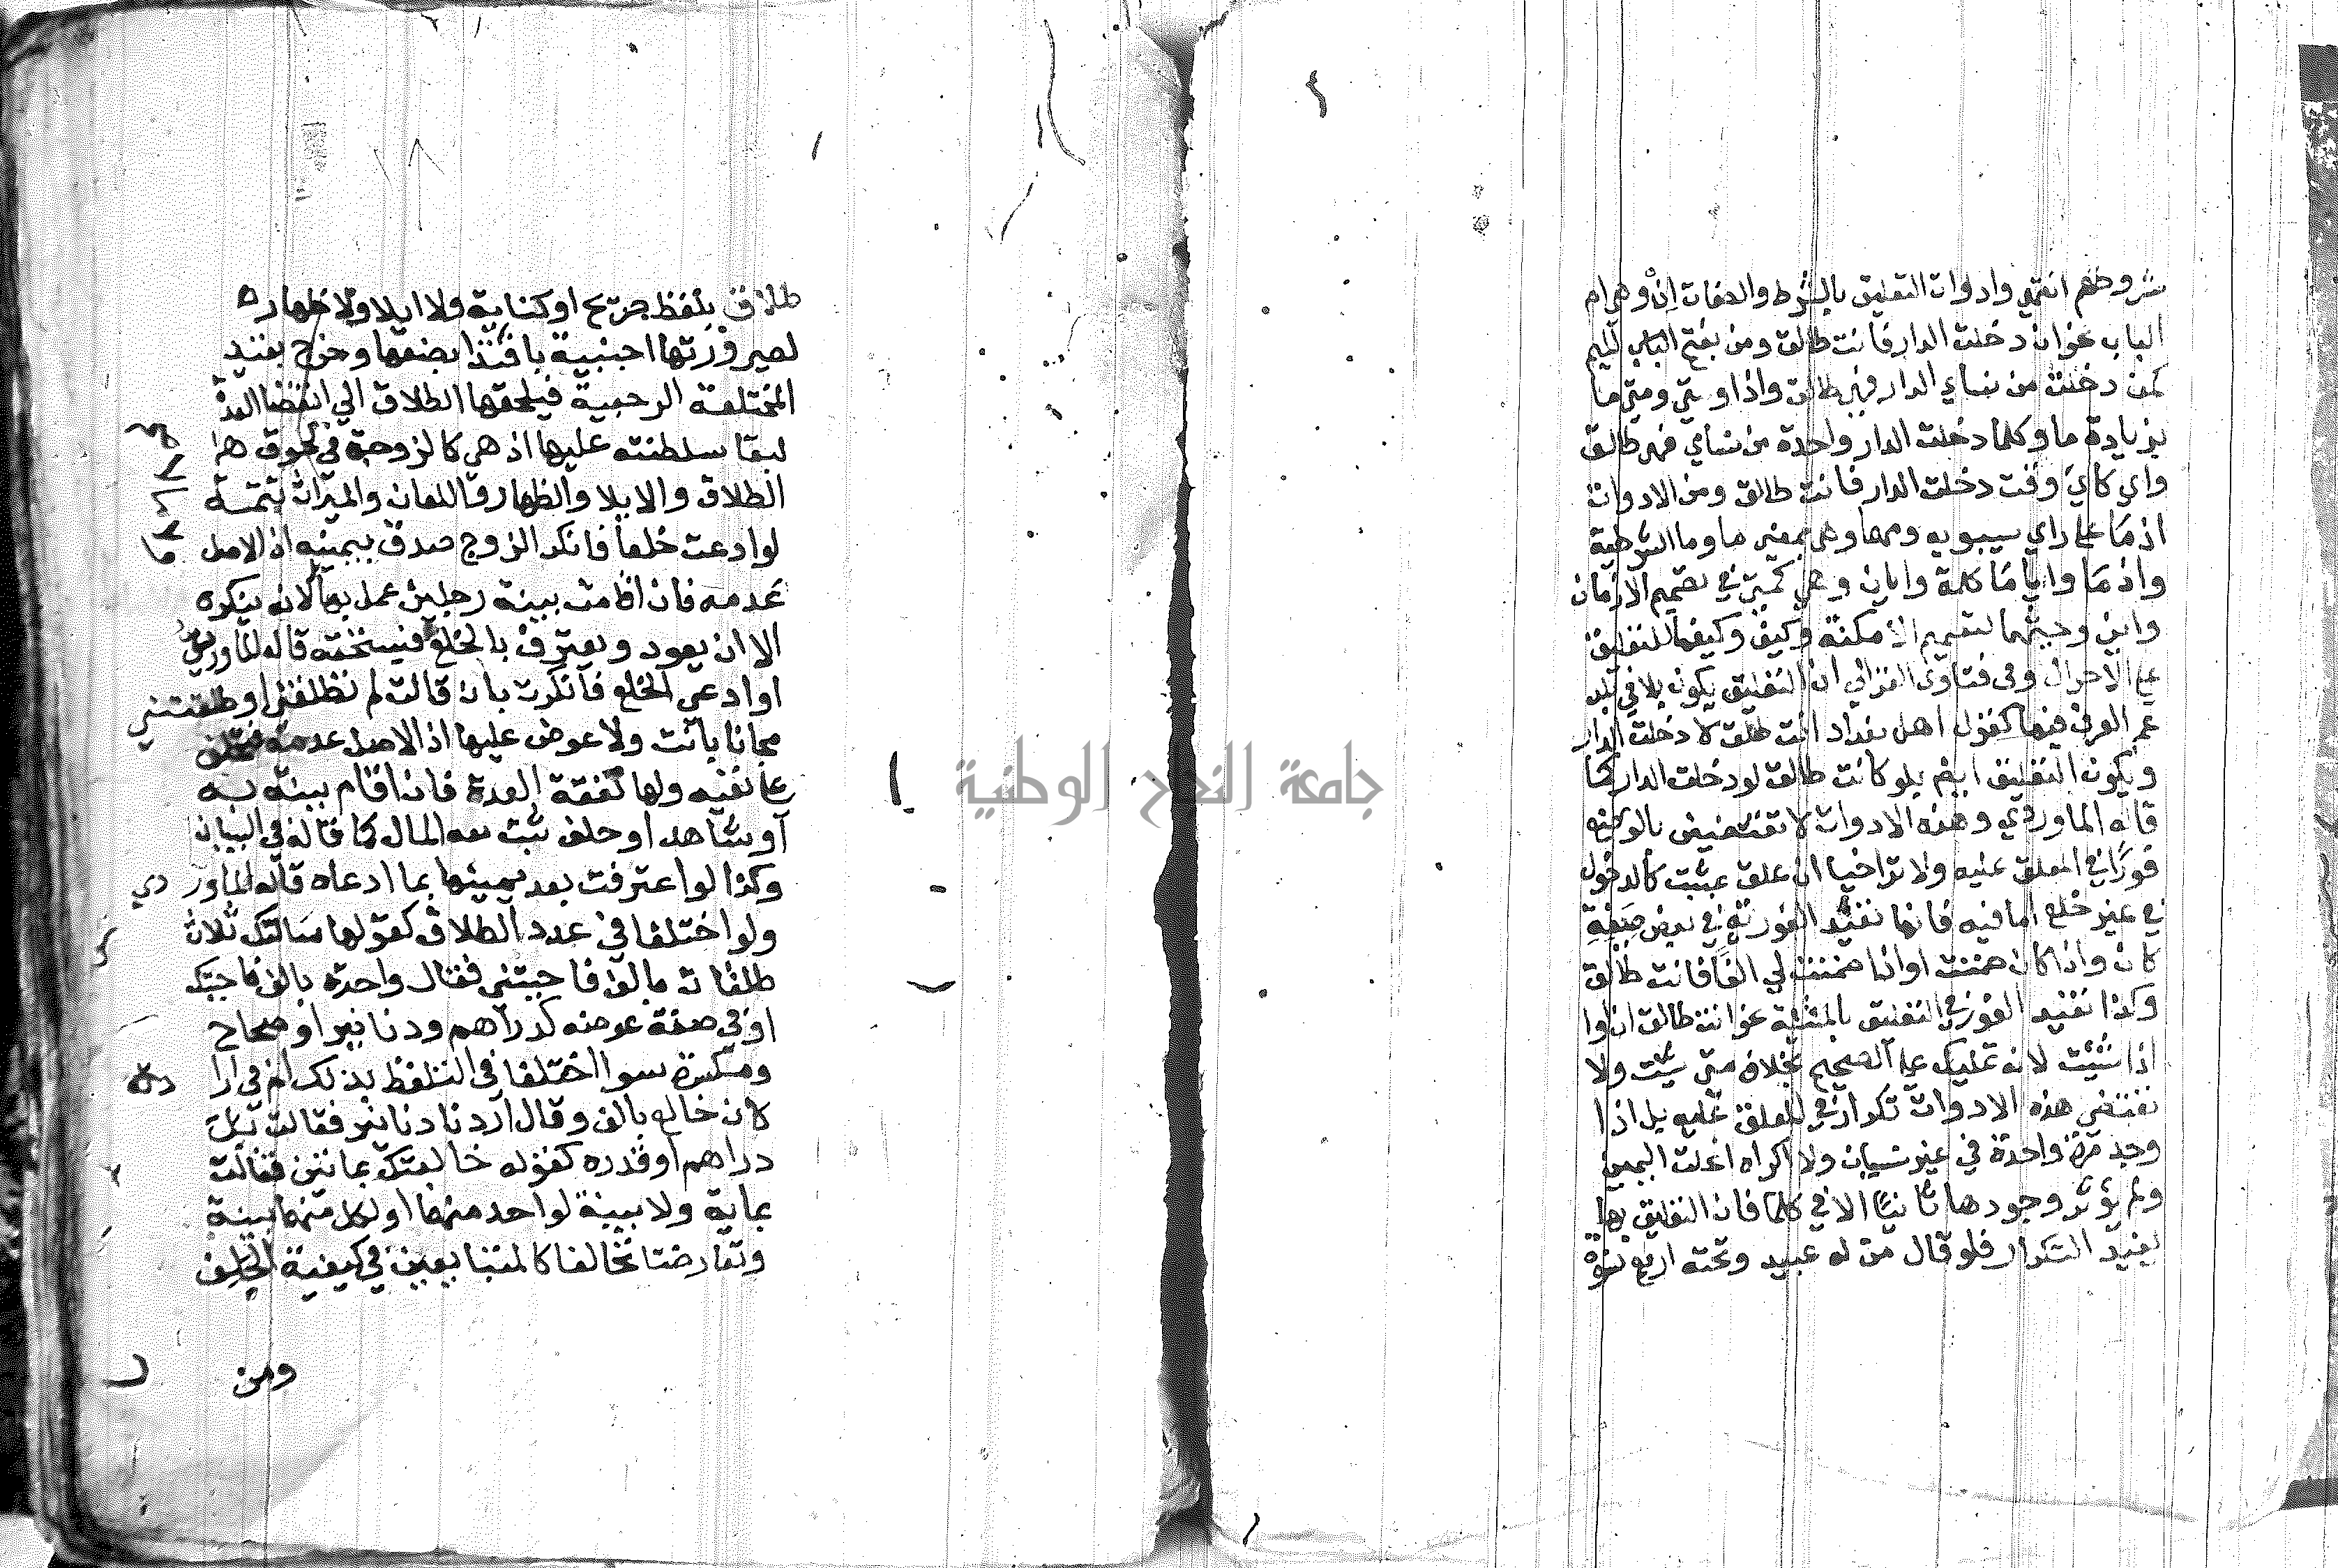 شروطهم انتهى وادوات التعليق بالشرط والصفات إنْ وهي ام
الباب نحو ان دخلت الدار فانت طالق ومن بفتح الميم
كمن دخلت من نساي الدار فهي طالق واذا ومتي ومتي ما
بزيادة ما وكلما دخلت الدار واحدة من نساي فهي طالق
واي كاي وقت دخلت الدار فانت طالق ومن الادوات
اذ ما على راي سيبويه ومهما وهي بمعني ما وما الشرطية
واذ ما وايا ما كلمة وايان وهي كمتي في تعميم الازمان
واين وحيثما لتعميم الامكنة وكيف وكيفما للتعليق
علي الاحوال وفي فتاوى الغزالي ان التعليق يكون بلا في بلد
عم العرف فيها كقول اهل بغداد انت طالق لا دخلت الدار
ويكون التعليق ايضا بلو كانت طالق لو دخلت الدار كما
قاله الماوردي وهذه الادوات لا تقتضي بالوضع
فورًا في المعلق عليه ولا تراخيا ان علق بمثبت كالدخول
في غير خلع اما فيه فانها تفيد الفورية في بعض صيغه
كان واذا كان ضمنت او اذا ضمنت لي الفا فانت طالق
وكذا تفيد الفور في التعليق بالمشية نحو انت طالق ان او
اذا شئت لانه تمليك على الصحيح بخلاف متى شئت ولا
تقتضي هذه الادوات تكرارا في المعلق عليه بل اذا
وجد مرة واحدة في غير نسيان ولا اكراه انحلت اليمين
ولم يؤثر وجودها ثانيا الا في كلما فان التعليق بها
يفيد التكرار فلو قال من له عبيد وتحته اربع نسوة
طلاق بلفظ صريح او كناية ولا ايلا ولا ظهار
لصيرورتها اجنبية بافتدا بضعها وخرج بقيد
المختلعة الرجعية فيلحقها الطلاق الي انقضا العدة
لبقا سلطنته عليها اذ هي كالزوجة في لحوق
الطلاق والايلا والظهار واللعان والميراث تتمة
لو ادعت خلعا فانكر الزوج صدق بيمينه اذ الاصل
عدمه فان اقامت بينة رجلين عمل بها لانه ينكره
الا ان يعود ويعترف بالخلع فيستحقه قاله الماوردي
او ادعى الخلع فانكرت بان قالت لم تطلقني او طلقتني
مجانا بانت ولا عوض عليها اذ الاصل عدمه فتحلف
علي نفيه ولها نفقة العدة فان اقام بينة به
او شاهدا وحلف ثبت معه المال كما قاله في البيان
وكذا لو اعترفت بعد يمينها بما ادعاه قاله الماوردي
ولو اختلفا في عدد الطلاق كقولها سالتك ثلاث
طلقات بالف فاجبتني فقال واحدة بالف فاجبتك
او في صفة عوضه كدراهم ودنانير او صحاح
ومكسرة سوا اختلفا في التلفظ بذلك ام في ارا
كان خالع بالف وقال اردنا دنانير فقالت بل
دراهم او قدره كقوله خالعتك بمائتين فقالت
بماية ولا بينة لواحد منهما او لكل منهما بينة
وتعارضتا تحالفا كالمتبايعين في كيفية الحلف
ومن